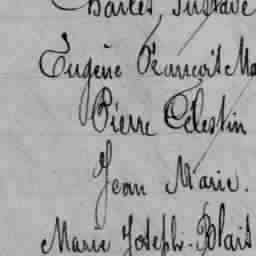 Charles, Gustave
Eugène François Ma
Pierre Célestin
Jean Marie.
Marie Joseph-Blais